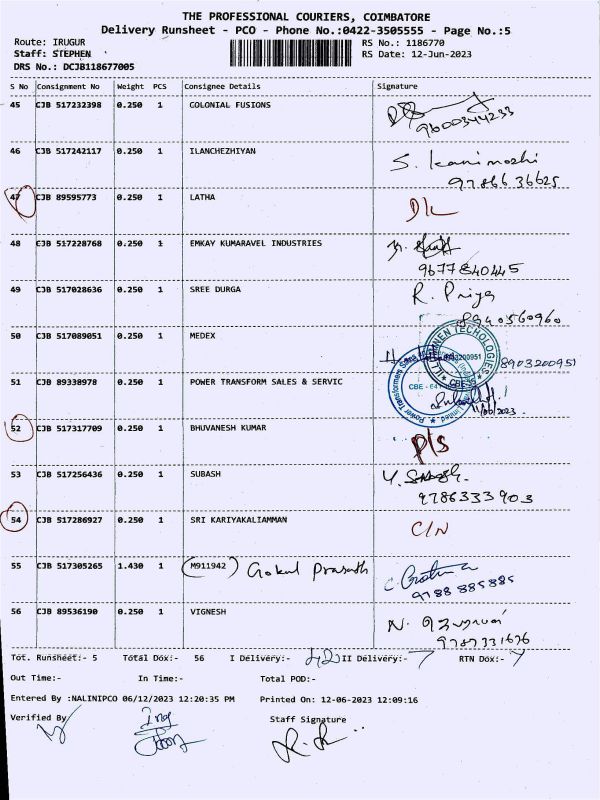 THE PROFESSIONAL COURIERS, COIMBATORE
Delivery Runsheet - PCO - Phone No.:0422-3505555 - Page No.:5
Route: IRUGUR RS No.: 1186770
Staff: STEPHEN RS Date: 12-Jun-2023
DRS No.: DCJB118677005
S No Consignment No Weight PCS Consignee Details Signature
45 CJB 517232398 0.250 1 COLONIAL FUSIONS
9600344233
46 CJB 517242117 0.250 1 ILANCHEZHIYAN S. Kanimozhi
9786636625
47 CJB 89595773 0.250 1 LATHA D/L
48 CJB 517228768 0.250 1 EMKAY KUMARAVEL INDUSTRIES
9677840445
49 CJB 517028636 0.250 1 SREE DURGA R. Priya
8940560960
50 CJB 517089051 0.250 1 MEDEX 8903200951
51 CJB 89338978 0.250 1 POWER TRANSFORM SALES & SERVIC
52 CJB 517317709 0.250 1 BHUVANESH KUMAR P/S
53 CJB 517256436 0.250 1 SUBASH
9786333903
54 CJB 517286927 0.250 1 SRI KARIYAKALIAMMAN C/N
55 CJB 517305265 1.430 1 (M911942) Gokul Prasath
9788885885
56 CJB 89536190 0.250 1 VIGNESH
9787331676
Tot. Runsheet:- 5 Total Dox:- 56 I Delivery:- 42 II Delivery:- 7 RTN Dox:- 7
Out Time:- In Time:- Total POD:-
Entered By :NALINIPCO 06/12/2023 12:20:35 PM Printed On: 12-06-2023 12:09:16
Verified By Staff Signature